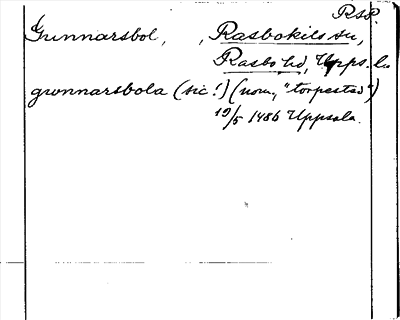 RSP.
Gunnarsbol, , Rasbokils sn,
Rasbo hd, Upps. l.
gwnnarsbola (sic!) (nom., "torpestad")
19/5 1486 Uppsala.